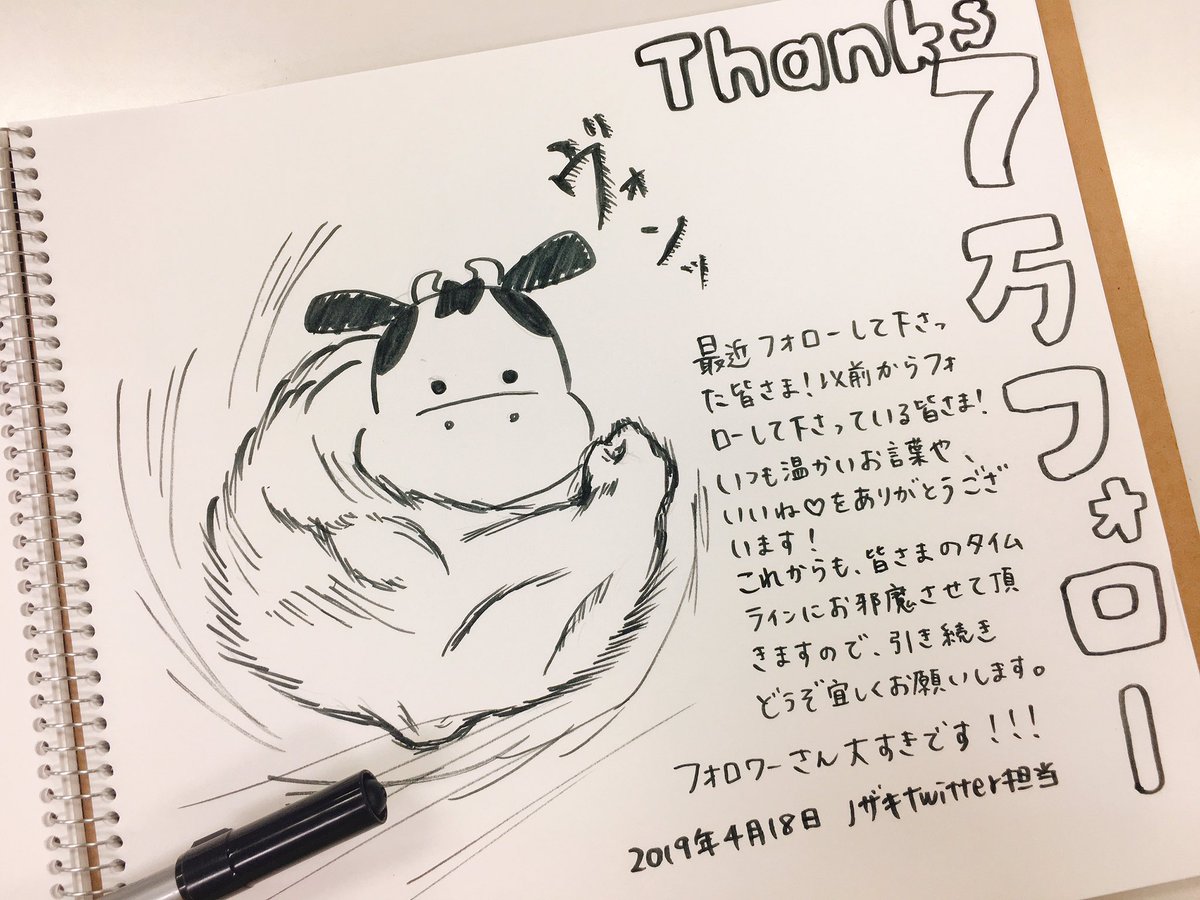 Thanks
7万フォロー
ヴォンッ
最近フォローして下さっ
た皆さま!以前からフォ
ローして下さっている皆さま!
いつも温かいお言葉や、
いいね♡をありがとうござ
います!
これからも、皆さまのタイム
ラインにお邪魔させて頂
きますので、引き続き
どうぞ宜しくお願いします。
フォロワーさん大すきです!!!
2019年4月18日 ノザキtwitter担当